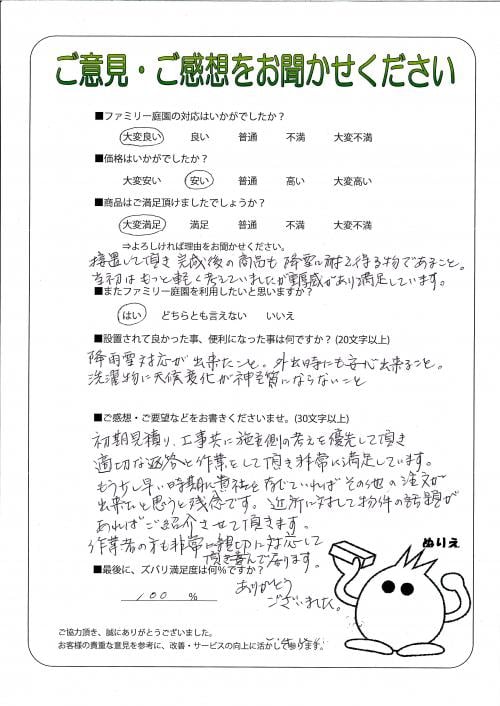 ご意見・ご感想をお聞かせください
■ファミリー庭園の対応はいかがでしたか？
大変良い 良い 普通 不満 大変不満
■価格はいかがでしたか？
大変安い 安い 普通 高い 大変高い
■商品はご満足頂けましたでしょうか？
大変満足 満足 普通 不満 大変不満
⇒よろしければ理由をお聞かせください。
接置して頂き完成後の商品も降雪に耐え得る物であること。
当初はもっと軽く考えていましたが重厚感があり満足しています。
■またファミリー庭園を利用したいと思いますか？
はい どちらとも言えない いいえ
■設置されて良かった事、便利になった事は何ですか？(20文字以上)
降雨雪対応が出来たこと。外出時にも安心出来ること。
洗濯物に天候変化が神経質にならないこと
■ご感想・ご要望などをお書きくださいませ。(30文字以上)
初期見積り、工事共に施主側の考えを優先して頂き
適切な返答と作業をして頂き非常に満足しています。
もう少し早い時期に貴社を存じていればその他の注文が
出来たと思うと残念です。近所に対して物件の話題が
あればご紹介させて頂きます。
作業者の方も非常に親切に対応して
頂き喜んでおります。
■最後に、ズバリ満足度は何％ですか？
100 %
ありがとう
ございました。
ぬりえ
ご協力頂き、誠にありがとうございました。
お客様の貴重な意見を参考に、改善・サービスの向上に活かして参ります。